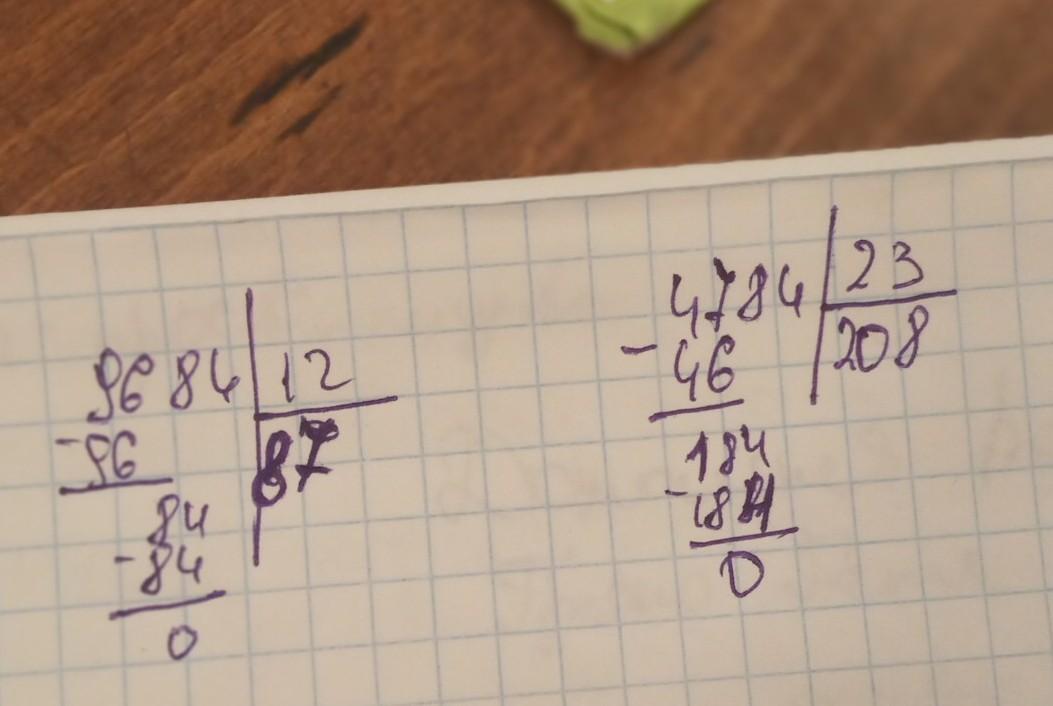 9684 12
-96 87
84
-84
0
4784 23
-46 208
184
-184
0